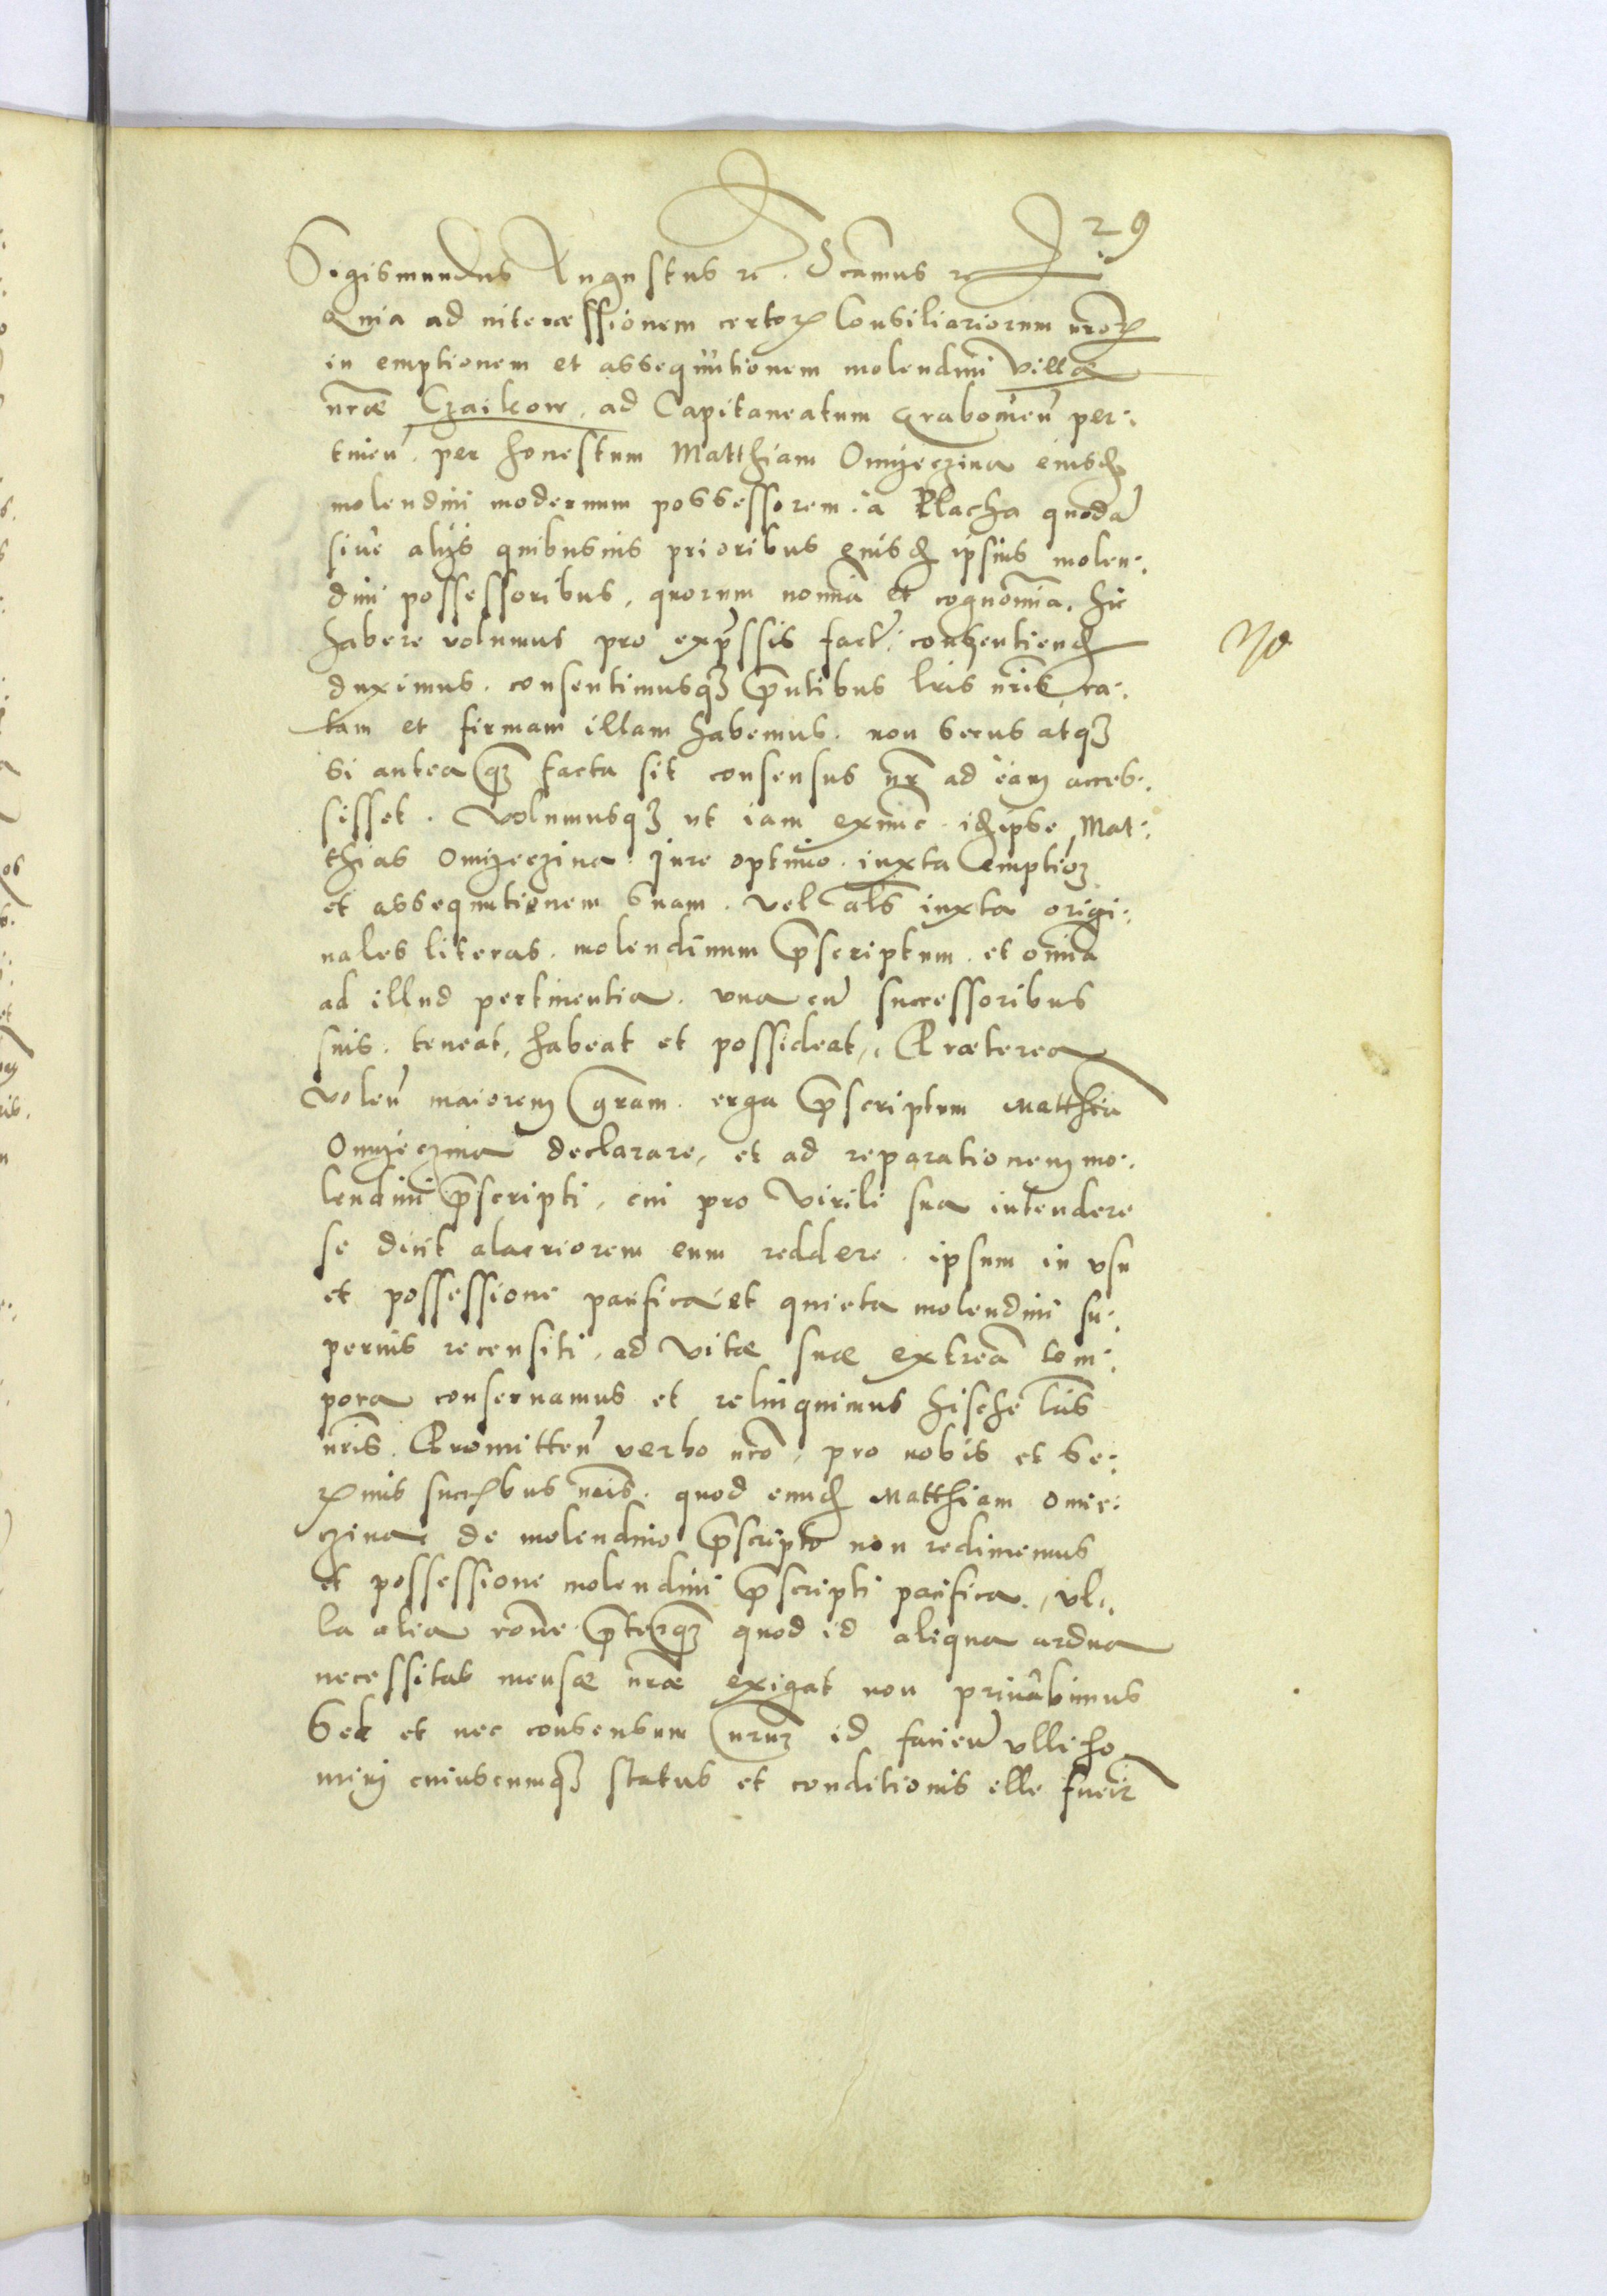 29
Sigismundus Augustus etc. Scamus etc
Quia ad intercessionem certorꝝ Consiliariorum nrorꝝ
in emptionem et assequutionem molendini villæ
nræ Czaikow, ad Capitaneatum Grabovien̄ per:
tinen̄. per honestum Matthiam Omyeczina eiusd̄
molendini modernum possessorem. à Placha quodā
siue alijs quibusuis prioribus eiusd̄ ipsius molen:
dini possessoribus, quorum noīna et cognoīna, hic
habere volumus pro exp̄ssis fact̄: consentiend̄
duximus. consentimusqꝫ p̄ntibus lris nris, ra:
tam et firmam illam habemus. non secus atqꝫ
si antea qꝫ facta sit consensus nr̄ ad eam acces:
sisset. Volumusqꝫ ut iam exnunc. id̄ ipse Mat:
thias Omyeczina. Jure optimo. iuxta emptioꝫ
et assequutionem suam. vel als̄ iuxta origi:
nales literas. molendinum p̄scriptum. et omīa
ad illud pertinentia. vna cū successoribus
suis. teneat, habeat et possideat, Præterea
volen̄ maiorem gram. erga p̄scriptum Matthiā
Omyeczina declarare, et ad reparationem mo:
lendini p̄scripti, cui pro virili sua intendere
se dicit alacriorem eum reddere. ipsum in vsu
et possessione pacifica et quieta molendini su:
perius recensiti, ad vitæ suæ extrea tem:
pora conseruamus et relinquimus hisce lris
nris. Promitten̄ verbo nro, pro nobis et Se:
rꝫmis succ̄bus nris. quod eund̄ Matthiam Omie:
czina de molendino p̄scripto non redimemus
et possessione molendini p̄scripti pacifica, vl:
la alia rōne p̄terqꝫ quod id aliqua ardua
necessitas mensæ nræ exigat non priuabimus
Sed et nec consensum nrum id faciend̄ vlli ho
mini cuiuscumqꝫ status et conditionis ille fuerit